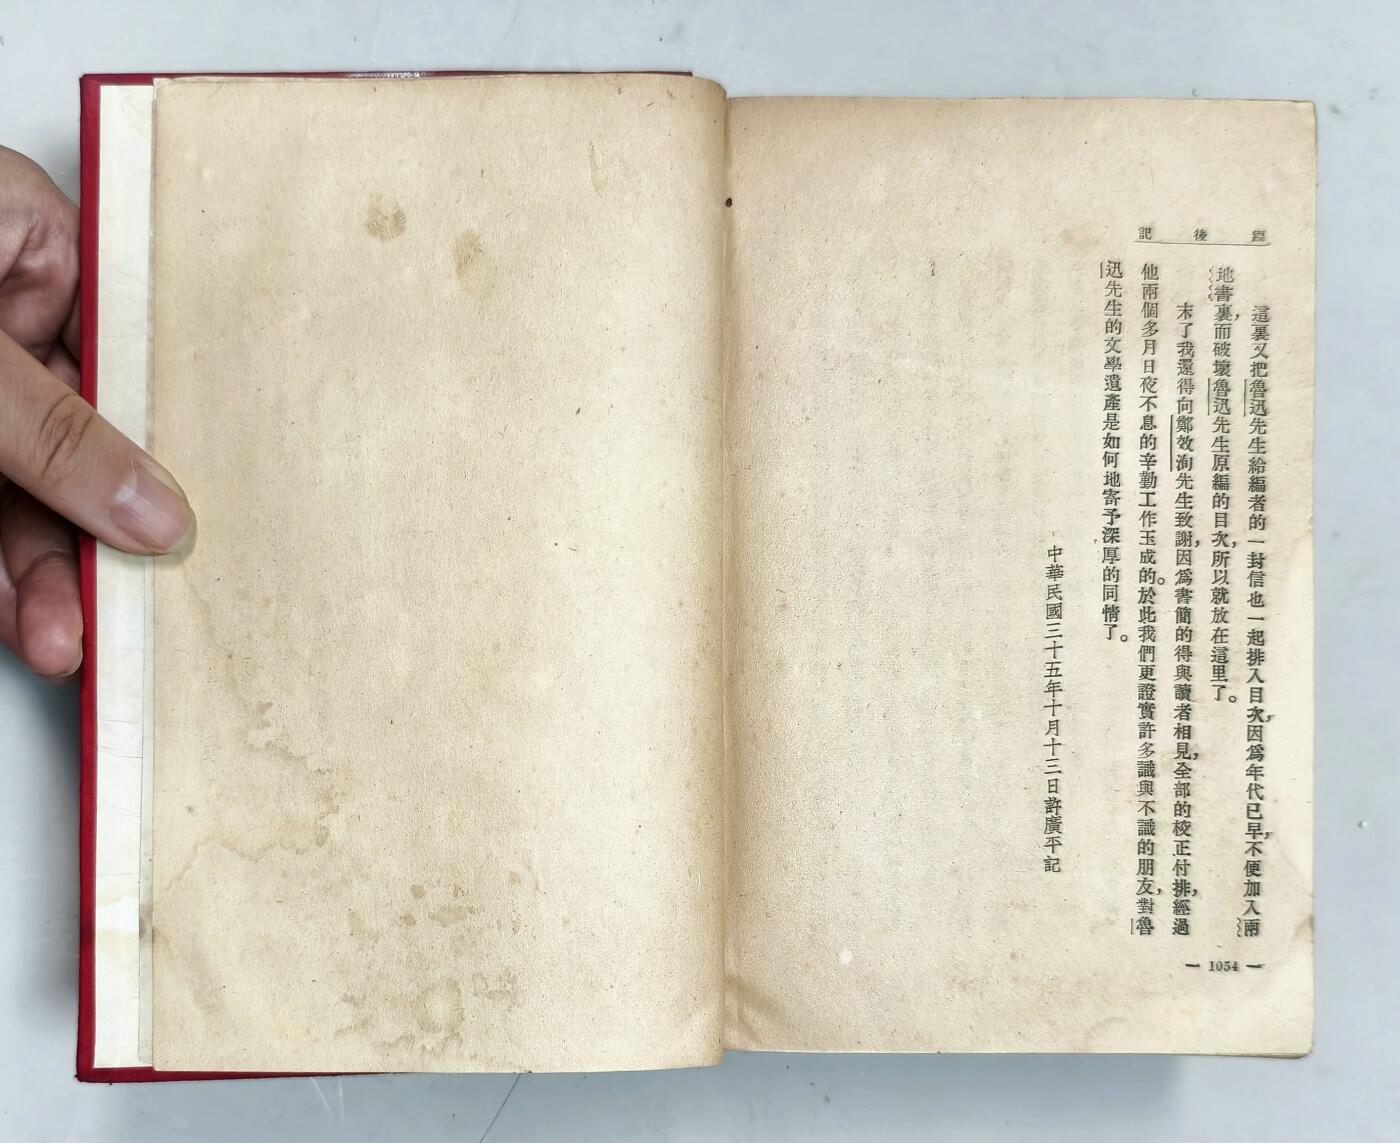 編後記
這裏又把魯迅先生給編者的一封信也一起排入目次，因爲年代已早，不便加入兩
地書裏，而破壞魯迅先生原編的目次，所以就放在這里了。
末了我還得向鄭效洵先生致謝，因爲書簡的得與讀者相見，全部的校正付排，經過
他兩個多月日夜不息的辛勤工作玉成的。於此我們更證實許多識與不識的朋友，對魯
迅先生的文學遺產是如何地寄予深厚的同情了。
中華民國三十五年十月十三日許廣平記
— 1054 —